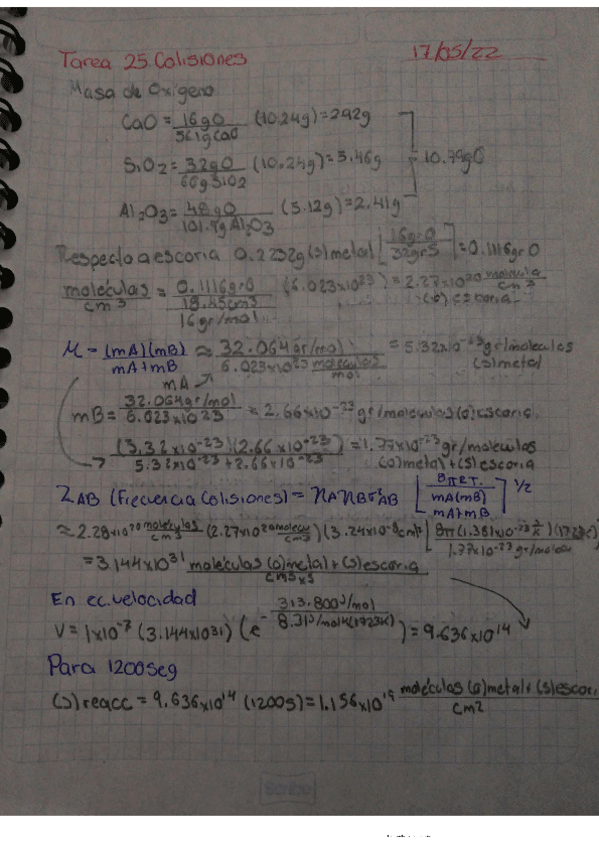 Tarea 25 Colisiones 17/05/22
Masa de Oxigeno
CaO = 16gO / 56.1gCaO (10.24g) = 2.92g
SiO2 = 32gO / 60gSiO2 (10.24g) = 5.46g = 10.79gO
Al2O3 = 48gO / 101.9gAl2O3 (5.12g) = 2.41g
Respecto a escoria 0.2232g(s)metal [16grO / 32grS] = 0.1116grO
moléculas / cm3 = 0.1116grO / 18.45cm3 / 16gr/mol (6.023x10^23) = 2.27x10^20 molecula / cm3 (o) escoria
M = (mA)(mB) / mA+mB ≈ 32.064gr/mol / 6.023x10^23 moleculas/mol = 5.32x10^-23 gr/moleculas (s)metal
mA
mB = 32.064gr/mol / 6.023x10^23 = 2.66x10^-23 gr/moleculas(o)escoria
(5.32x10^-23)(2.66x10^-23) / 5.32x10^-23+2.66x10^-23 = 1.77x10^-23 gr/moleculas (o)metal+(s)escoria
ZAB (Frecuencia Colisiones) = nA nB σ²AB [8πRT / mA(mB) / mA+mB]^1/2
≈ 2.28x10^20 moléculas/cm3 (2.27x10^20 molecu/cm3)(3.24x10^-8cm)² [8π(1.381x10^-23)(1723K) / 1.77x10^-23 gr/molecu
= 3.144x10^31 moléculas (o)metal+(s)escoria / cm3xs
En ec. velocidad
V = 1x10^-7 (3.144x1031) (e^- 313.800J/mol / 8.31J/molK(1723K)) = 9.636x10^14
Para 1200seg
(s) reacc = 9.636x10^14 (1200s) = 1.156x10^19 moléculas (o)metal+(s)escori / cm2
Scribe